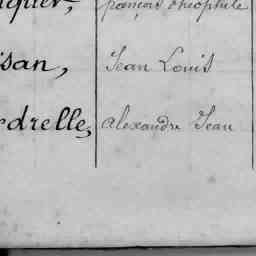 françois théophile
isan, Jean Louis
drelle, alexandre Jean